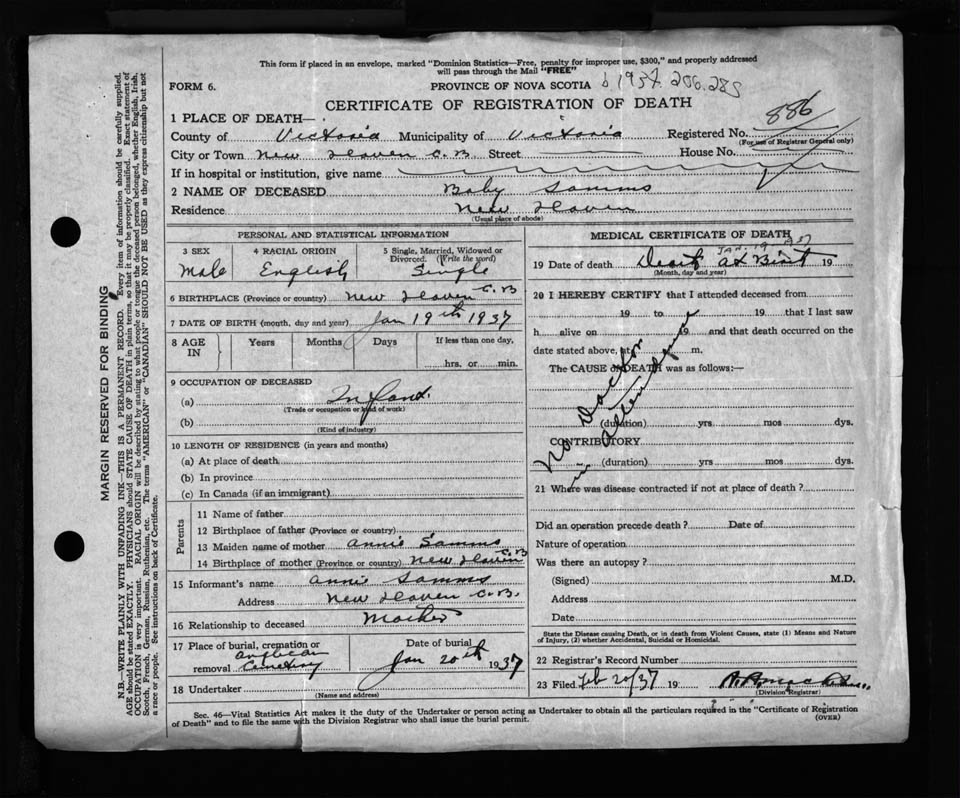 This form if placed in an envelope, marked "Dominion Statistics—Free, penalty for improper use, $300," and properly addressed
will pass through the Mail "FREE"
FORM 6.
PROVINCE OF NOVA SCOTIA
b 1937. 206.285
CERTIFICATE OF REGISTRATION OF DEATH
886
1 PLACE OF DEATH—
County of Victoria Municipality of Victoria Registered No.
(For use of Registrar General only)
City or Town New Haven C.B Street House No.
If in hospital or institution, give name
2 NAME OF DECEASED Baby Samms
Residence New Haven
(Usual place of abode)
PERSONAL AND STATISTICAL INFORMATION
3 SEX 4 RACIAL ORIGIN 5 Single, Married, Widowed or
Divorced. (Write the word)
Male English Single
6 BIRTHPLACE (Province or country) New Haven C.B
7 DATE OF BIRTH (month, day and year) Jan 19th 1937
8 AGE IN Years Months Days If less than one day,
hrs. or min.
9 OCCUPATION OF DECEASED
(a) Infant.
(Trade or occupation or kind of work)
(b)
(Kind of industry)
10 LENGTH OF RESIDENCE (in years and months)
(a) At place of death
(b) In province
(c) In Canada (if an immigrant)
Parents
11 Name of father
12 Birthplace of father (Province or country)
13 Maiden name of mother Annie Samms
14 Birthplace of mother (Province or country) New Haven C.B
15 Informant's name Annie Samms
Address New Haven C.B.
16 Relationship to deceased Mother
17 Place of burial, cremation or
removal Anglican Cemetery
Date of burial
Jan 20th 1937
18 Undertaker
(Name and address)
MEDICAL CERTIFICATE OF DEATH
JAN. 19 1937
19 Date of death Death at Birth 19
(Month, day and year)
20 I HEREBY CERTIFY that I attended deceased from
19 to 19 that I last saw
h alive on 19 and that death occurred on the
date stated above, at m.
The CAUSE OF DEATH was as follows:—
No Doctor
in attendance
(duration) yrs mos dys.
CONTRIBUTORY
(duration) yrs mos dys.
21 Where was disease contracted if not at place of death?
Did an operation precede death? Date of
Nature of operation
Was there an autopsy?
(Signed) M.D.
Address
Date
State the Disease causing Death, or in death from Violent Causes, state (1) Means and Nature
of Injury, (2) whether Accidental, Suicidal or Homicidal.
22 Registrar's Record Number
23 Filed Feb 20/37 19
(Division Registrar)
Sec. 46—Vital Statistics Act makes it the duty of the Undertaker or person acting as Undertaker to obtain all the particulars required in the "Certificate of Registration
of Death" and to file the same with the Division Registrar who shall issue the burial permit. (OVER)
MARGIN RESERVED FOR BINDING
N.B.—WRITE PLAINLY WITH UNFADING INK—THIS IS A PERMANENT RECORD. Every item of information should be carefully supplied.
AGE should be stated EXACTLY. PHYSICIANS should STATE CAUSE OF DEATH in plain terms, so that it may be properly classified. Exact statement of
OCCUPATION is very important. RACIAL ORIGIN will be described by stating to what people or tongue the deceased person belonged, whether English, Irish,
Scotch, French, German, Russian, Ruthenian, etc. The terms "AMERICAN" or "CANADIAN" SHOULD NOT BE USED as they express citizenship but not
a race or people. See instructions on back of Certificate.